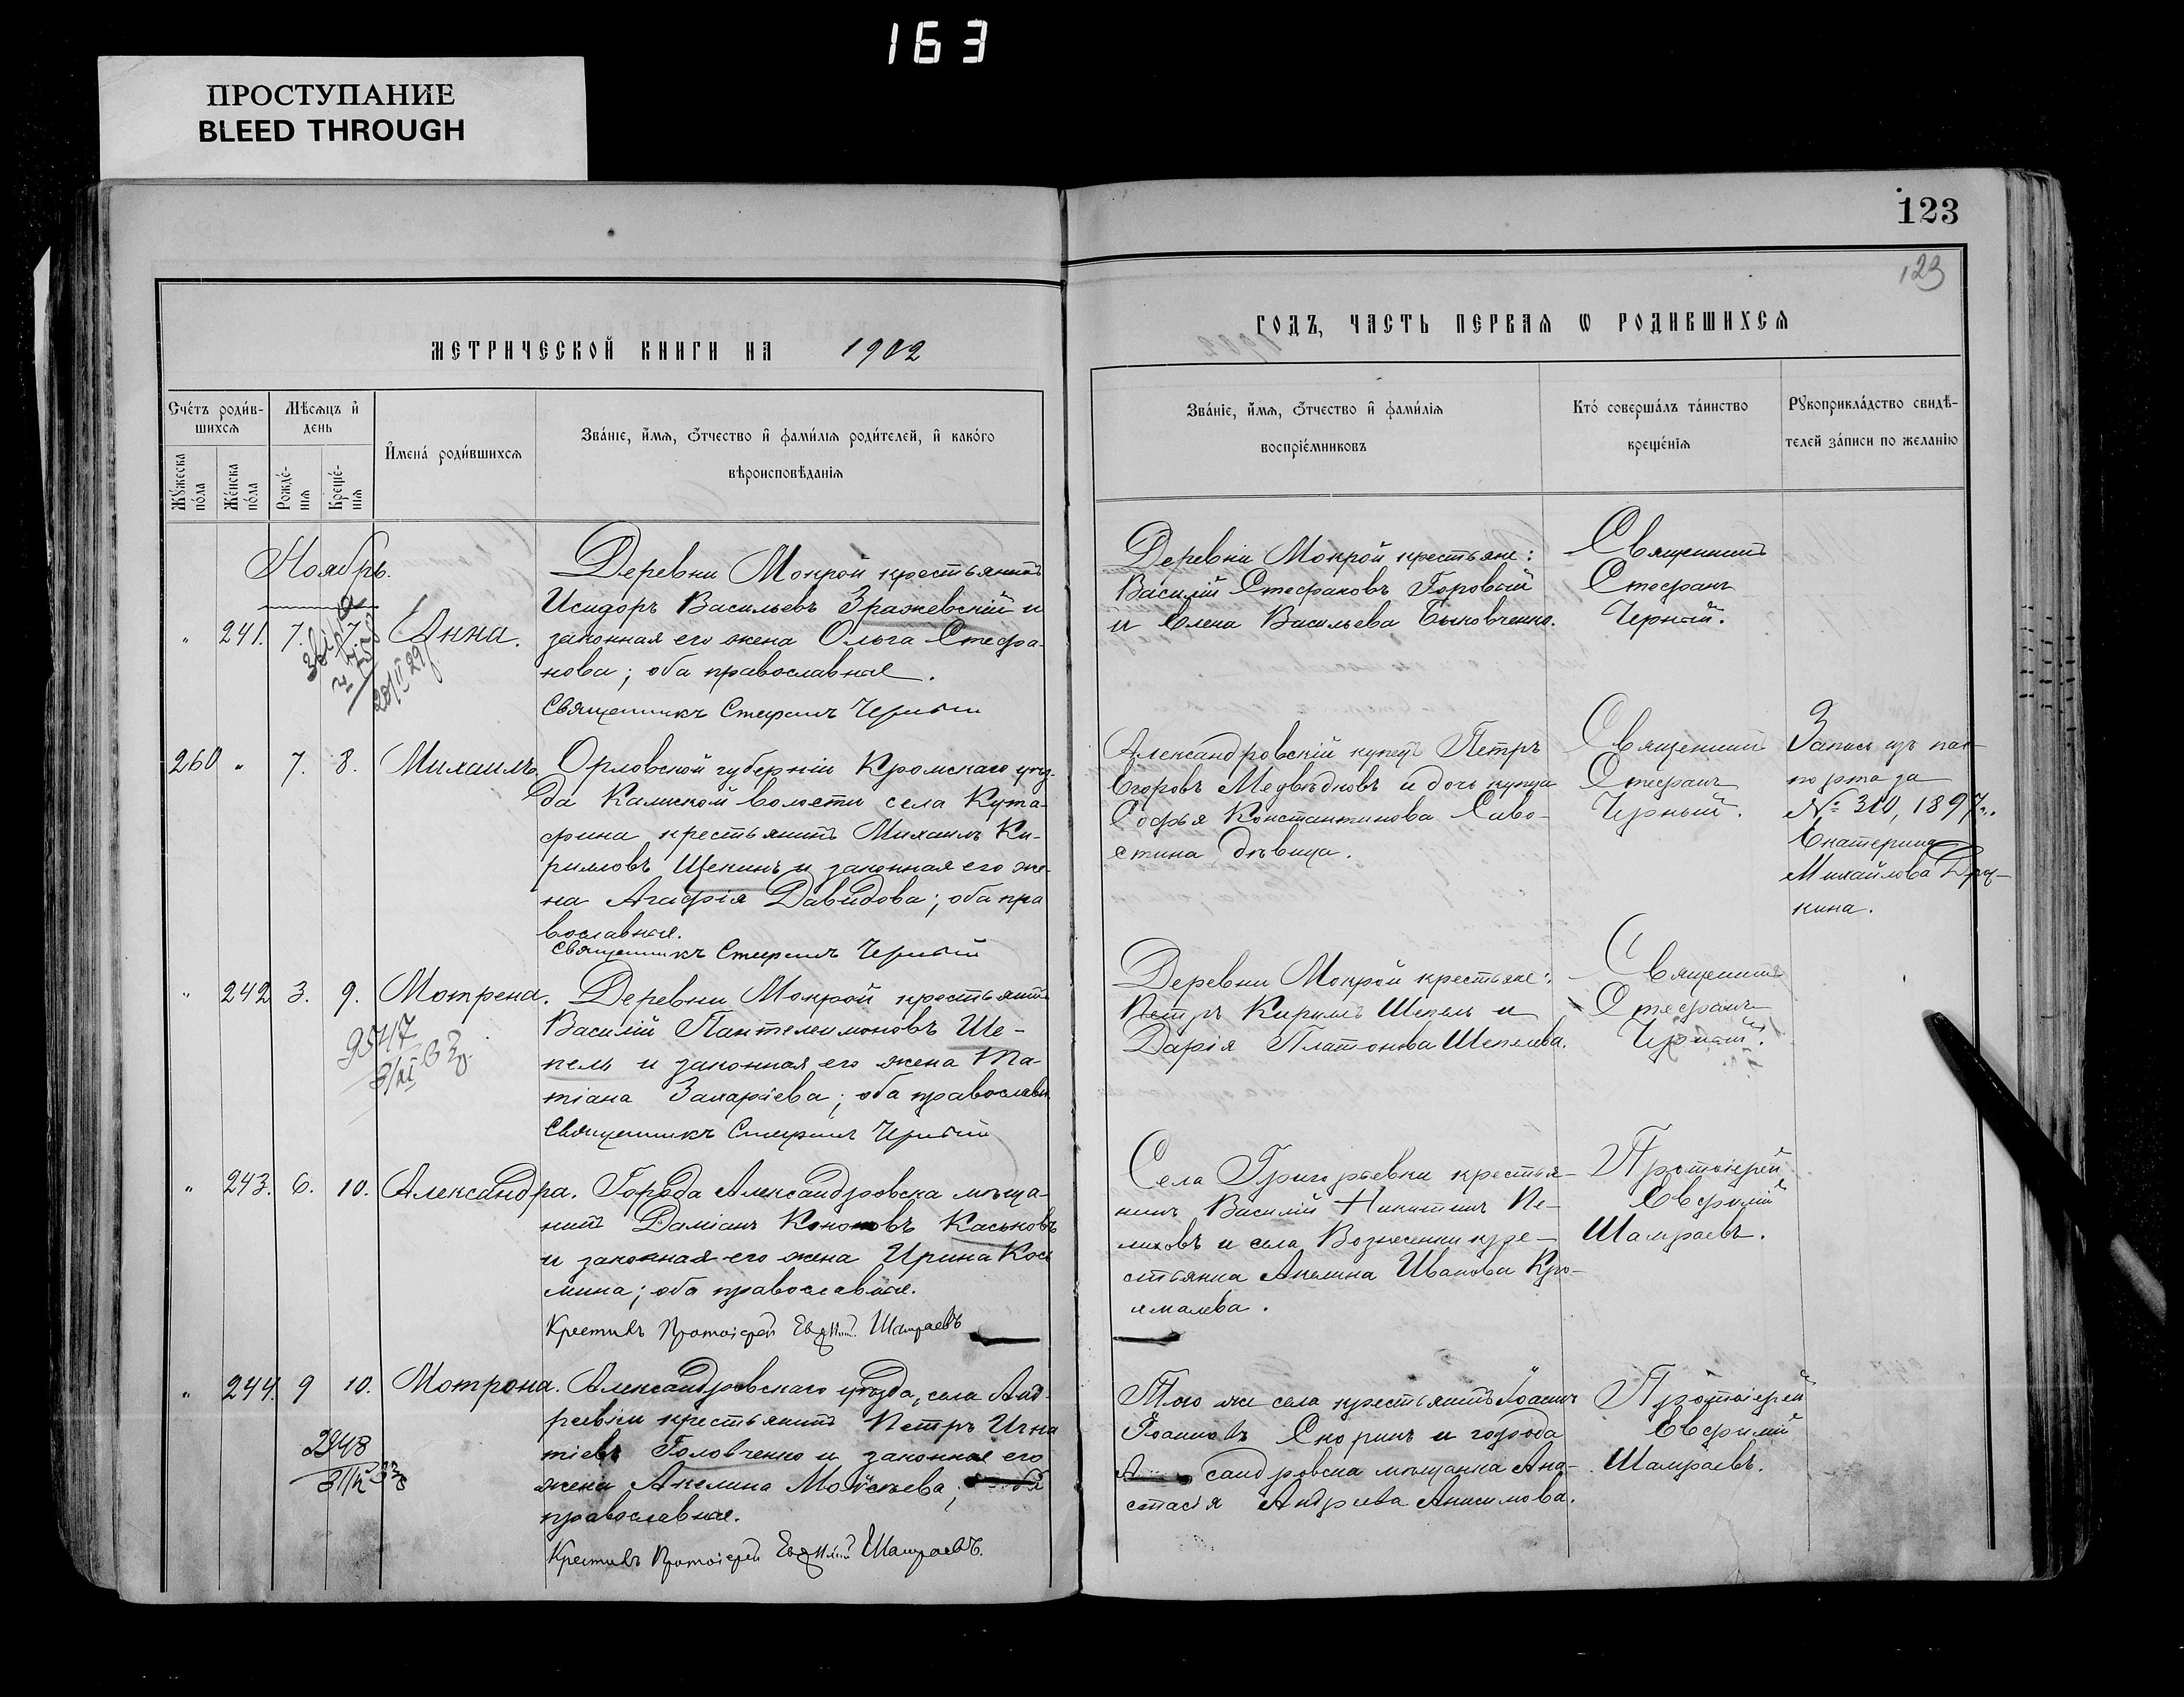 163
ПРОСТУПАНИЕ
BLEED THROUGH
123
123
МЕТРИЧЕСКОЙ КНИГИ НА 1902
ГОДЪ, ЧАСТЬ ПЕРВАЯ Ѡ РОДИВШИХСЯ
Счетъ родив-
шихся
Мѣсяцъ и
день
Мужеска
пола
Женска
пола
Рожде-
нія
Креще-
нія
Имена родившихся
Званіе, имя, отчество и фамилія родителей, и какого
вѣроисповѣданія
Званіе, имя, отчество и фамилія
воспріемниковъ
Кто совершалъ таинство
крещенія
Рукоприкладство свидѣ-
телей записи по желанію
Ноябрь.
" 241. 7. 7. Анна.
Деревни Мокрой крестьянинъ
Исидоръ Васильевъ Зражевскій и
законная его жена Ольга Стефа-
нова; оба православные.
Священникъ Стефанъ Черный
Деревни Мокрой крестьяне:
Василій Стефановъ Горовый
и Елена Васильева Быковченко.
Священникъ
Стефанъ
Черный.
260 " 7. 8. Михаилъ.
Орловской губерніи Кромскаго уѣз-
да Каменской волости села Кута-
фина крестьянинъ Михаилъ Ки-
рилловъ Щекинъ и законная его же-
на Агафія Давидова; оба пра
вославные.
Священникъ Стефанъ Черный
Александровскій купецъ Петръ
Егоровъ Медвѣдковъ и дочь купца
Софья Константинова Саво-
стина дѣвица.
Священникъ
Стефанъ
Черный.
Запись изъ пас-
порта за
№ 310, 1897 г.
Екатерина
Михайлова
кина.
" 242 3. 9. Мотрена.
Деревни Мокрой крестьянинъ
Василій Пантелеимоновъ Ше-
пель и законная его жена Та-
тіана Захаріева; оба православн.
Священникъ Стефанъ Черный
Деревни Мокрой крестьяне:
Петръ Кирилл Шепель и
Дарія Платонова Шепелева.
Священникъ
Стефанъ
Черный.
9547
" 243. 6. 10. Александра.
Города Александровска мѣща-
нинъ Даміанъ Кононовъ Каськовъ
и законная его жена Ирина Кось
мина; оба православные.
Крестилъ Протоіерей Евфимій Шамраевъ
Села Григорьевки крестья-
нинъ Василій Никитинъ Пе-
лиховъ и села Вознесенки кре-
стьянка Акелина Иванова Кро-
ямалева.
Протоіерей
Евфимій
Шамраевъ.
" 244. 9 10. Мотрона.
Александровскаго уѣзда, села Анд-
реевки крестьянинъ Петръ Игна
тіевъ Головченко и законная его
жена Акелина Моѵсеева; оба
православные.
Крестилъ Протоіерей Евфимій Шамраевъ.
Того же села крестьянинъ Іоаннъ
Іоанновъ Скоринъ и города
Александровска мѣщанка Ана-
стасія Андреева Анисимова.
Протоіерей
Евфимій
Шамраевъ.
2948